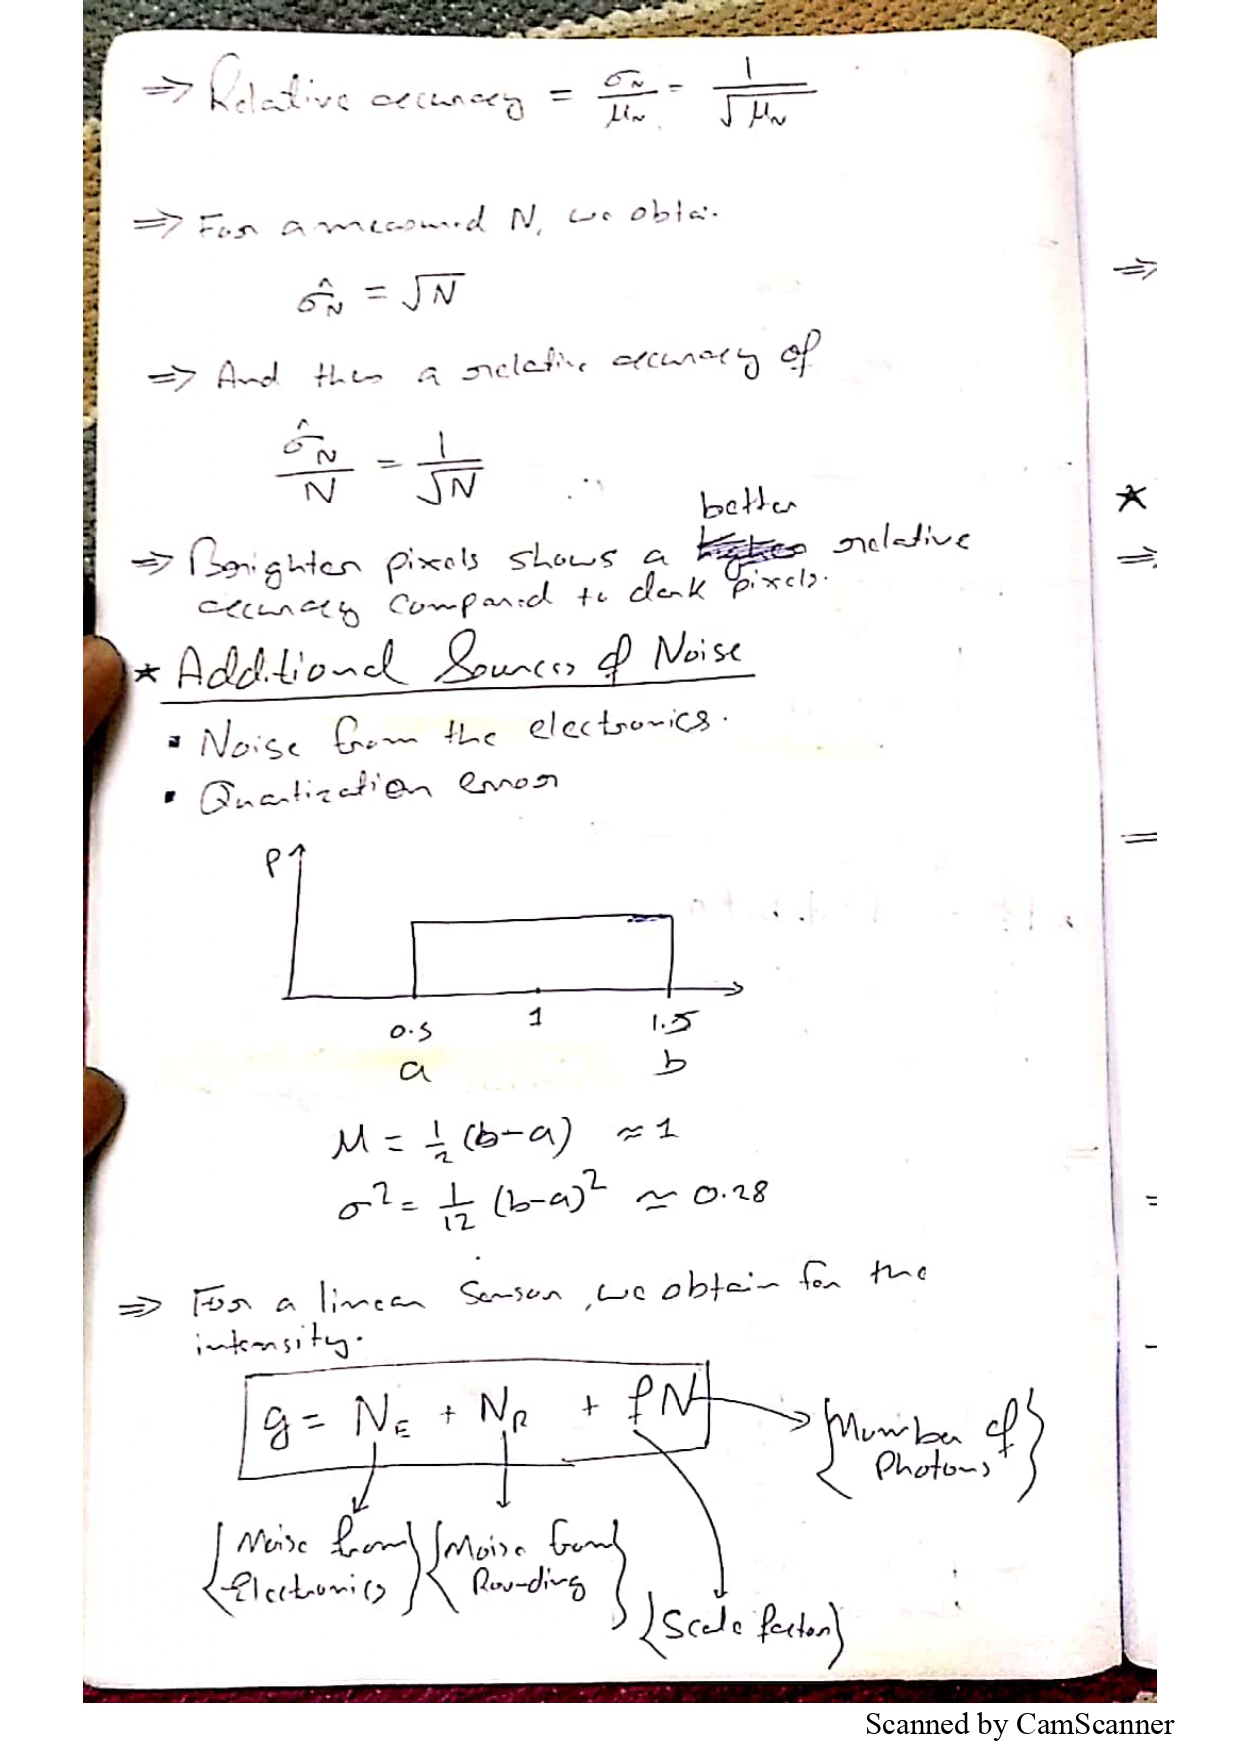 ⇒ Relative accuracy = σN/μN = 1/√μN
⇒ For a measured N, we obtain
σ̂N = √N
⇒ And thus a relative accuracy of
σ̂N/N = 1/√N
better
⇒ Brighter pixels shows a relative
accuracy compared to dark pixels.
★ Additional Sources of Noise
▪ Noise from the electronics.
▪ Quantization error
P
0.5 1 1.5
a b
M = 1/2 (b-a) ≈ 1
σ² = 1/12 (b-a)² ≃ 0.28
⇒ For a linear Sensor, we obtain for the
intensity.
g = NE + NR + fN
{Number of
Photons}
{Noise from
Electronics}
{Noise from
Rounding}
{Scale factor}
⇒
★
⇒
Scanned by CamScanner